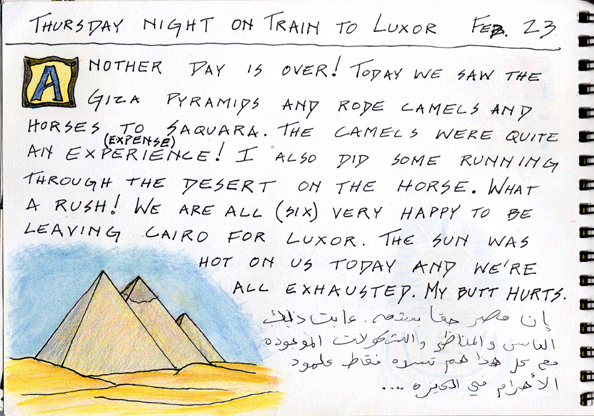 THURSDAY NIGHT ON TRAIN TO LUXOR FEB. 23
ANOTHER DAY IS OVER! TODAY WE SAW THE
GIZA PYRAMIDS AND RODE CAMELS AND
HORSES TO SAQUARA. THE CAMELS WERE QUITE
(EXPENSE)
AN EXPERIENCE! I ALSO DID SOME RUNNING
THROUGH THE DESERT ON THE HORSE. WHAT
A RUSH! WE ARE ALL (SIX) VERY HAPPY TO BE
LEAVING CAIRO FOR LUXOR. THE SUN WAS
HOT ON US TODAY AND WE'RE
ALL EXHAUSTED. MY BUTT HURTS.
إن مصر حقا
الناس والمناظر و الموجوده
مع كل هذا هم نقاط
الأهرام في الجيزه ...